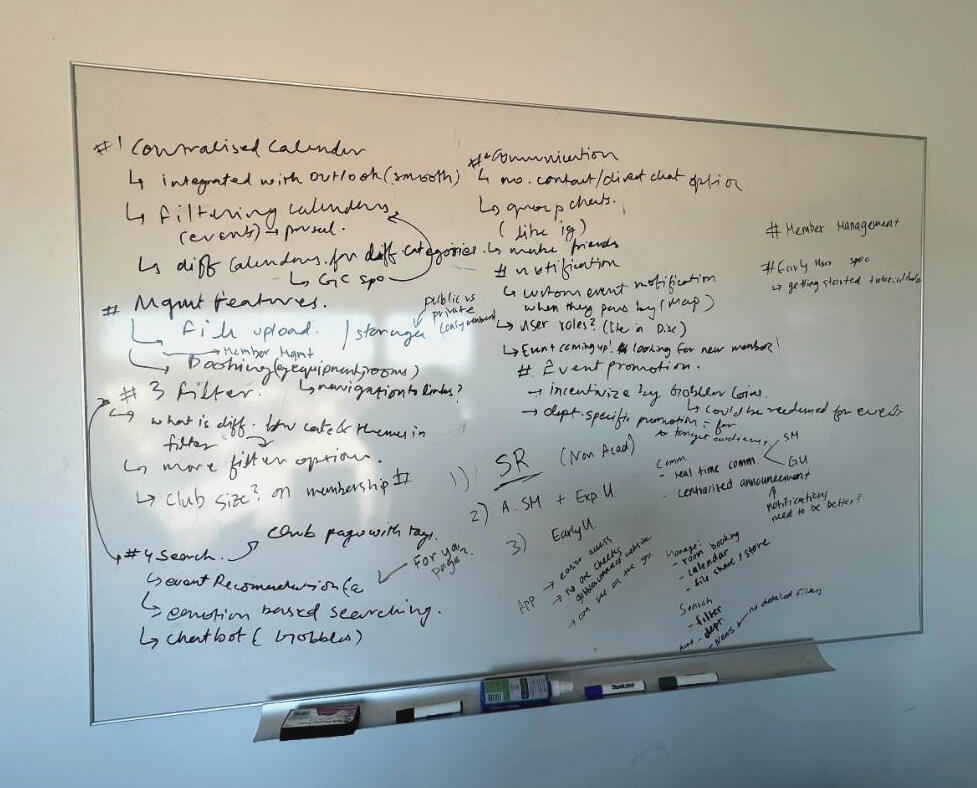 #1 Centralised Calender
↳ integrated with outlook (smooth)
↳ filtering calenders
(events) →
↳ diff calenders for diff categories.
↳ GC spo
# Mgmt Features.
↳ File upload. / storage
public vs
private
(only members)
→ Member Mgmt
↳ Booking (eg equipment, rooms)
↳ navigation to links?
# 3 filter.
↳ what is diff. btw cate & themes in
filter
↳ more filter option.
↳ club size? on membership #
club page with tags.
# 4 Search.
↳ event Recommendation
✓ For you
page.
↳ emotion based searching.
↳ chatbot (
#2 Communication
↳ no. contact/direct chat option
↳ group chats.
(like ig)
↳ make friends
# notification
↳ custom event notification
when they pass by (Map)
↳ User roles? (like in Disc)
↳ Event coming up! looking for new member!
# Event promotion.
→ incentivize by Gobbler Coins.
↳ could be redeemed for events
→ dept. specific promotion = for
target audience
# Member Management
# Early User spec
↳ getting started
1) SR (Non Acad)
2) A. SM + Exp U.
3) Early U.
App → easier access
→ no one checks
gobblerconnect website
→ can see on the go.
Comm.
- real time comm. SM
GU
- centralized announcement
↑
notifications
need to be better?
Manage:
- room booking
- calendar
- file share / store
Search
- filter
- dept.
- News no detailed filters